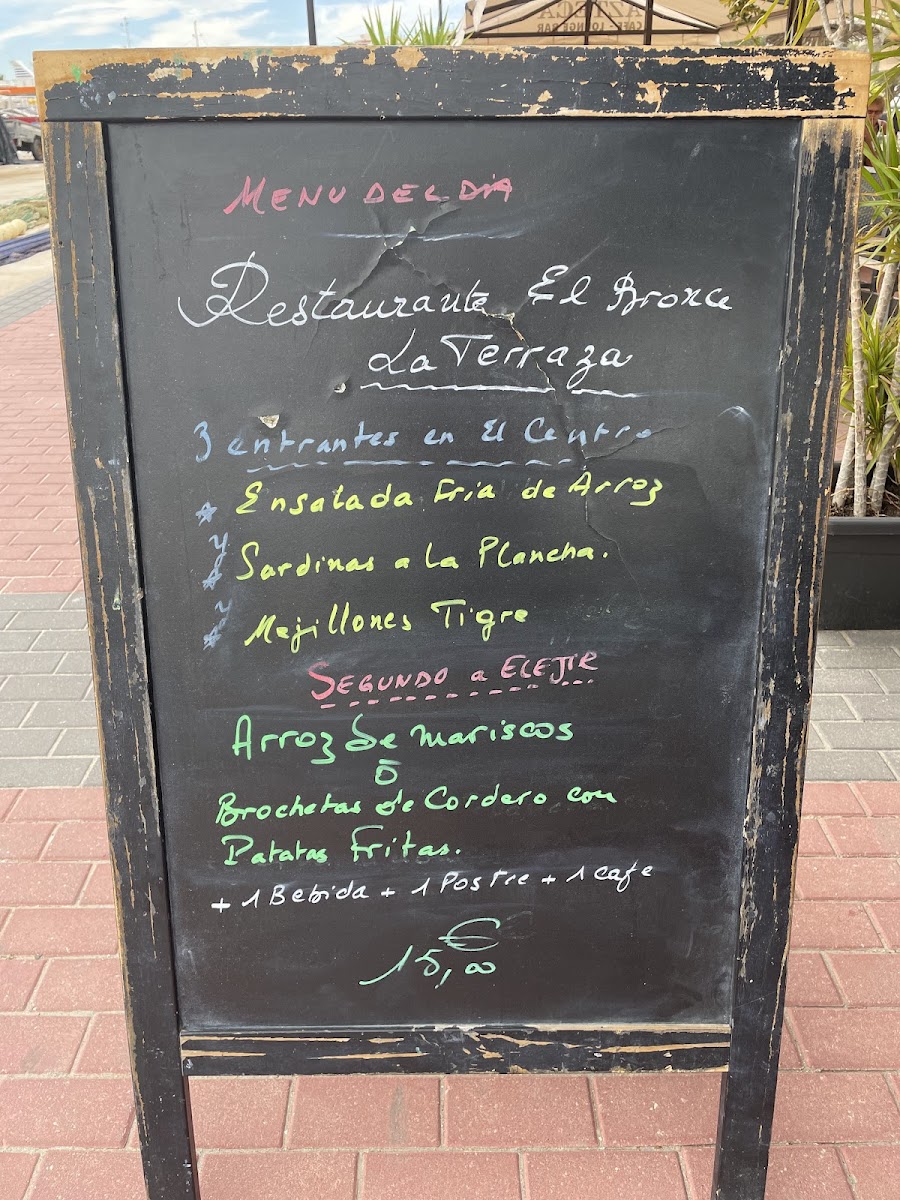 AZTECA
CAFE LOUNGE BAR
MENU DEL DIA
Restaurante El Bronca
La Terraza
3 entrantes en El Centro
Ensalada Fria de Arroz
y
Sardinas a La Plancha.
y
Mejillones Tigre
SEGUNDO a ELEJIR
Arroz de mariscos
ó
Brochetas de Cordero con
Patatas Fritas.
+ 1 Bebida + 1 Postre + 1 cafe
15,00 €